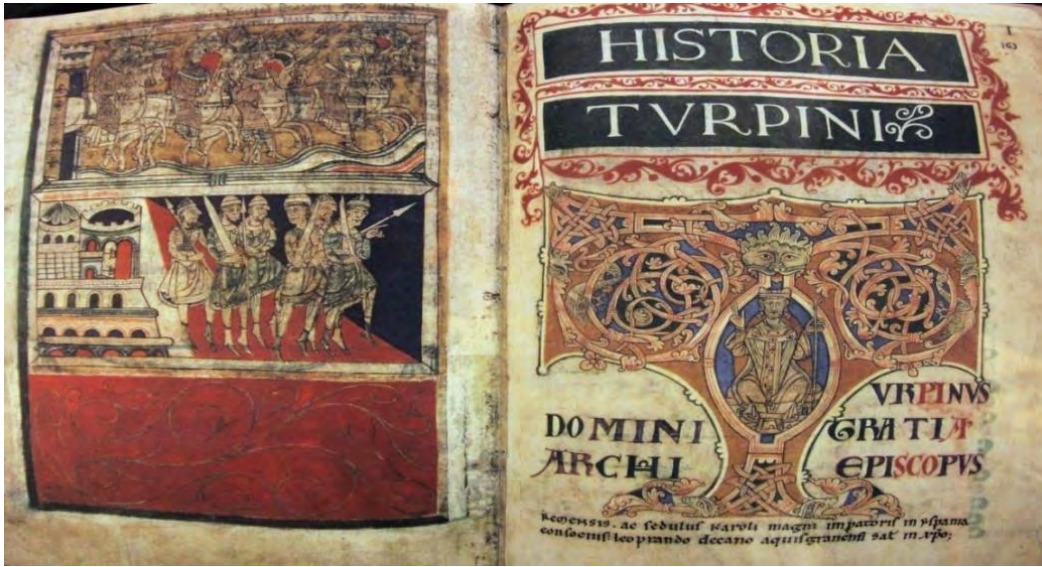 HISTORIA
TVRPINI
I
163
T
VRPINVS
DOMINI GRATIA
ARCHI EPISCOPVS
Remensis. ac sedulus Karoli magni imperatoris in yspania
consocius leoprando decano aquisgranensi sał in xpo;